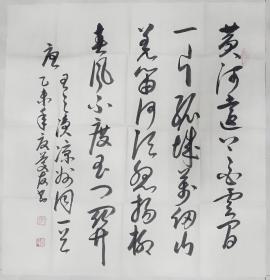 黄河远上白云间
一片孤城万仞山
羌笛何须怨杨柳
春风不度玉门关
唐王之涣凉州词一首
乙未年夏